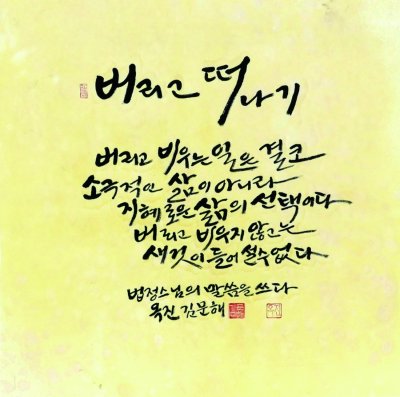 버리고 떠나기
버리고 비우는 일은 결코
소극적인 삶이 아니라
지혜로운 삶의 선택이다
버리고 비우지 않고는
새것이 들어설 수 없다
법정스님의 말씀을 쓰다
옥진 김문해